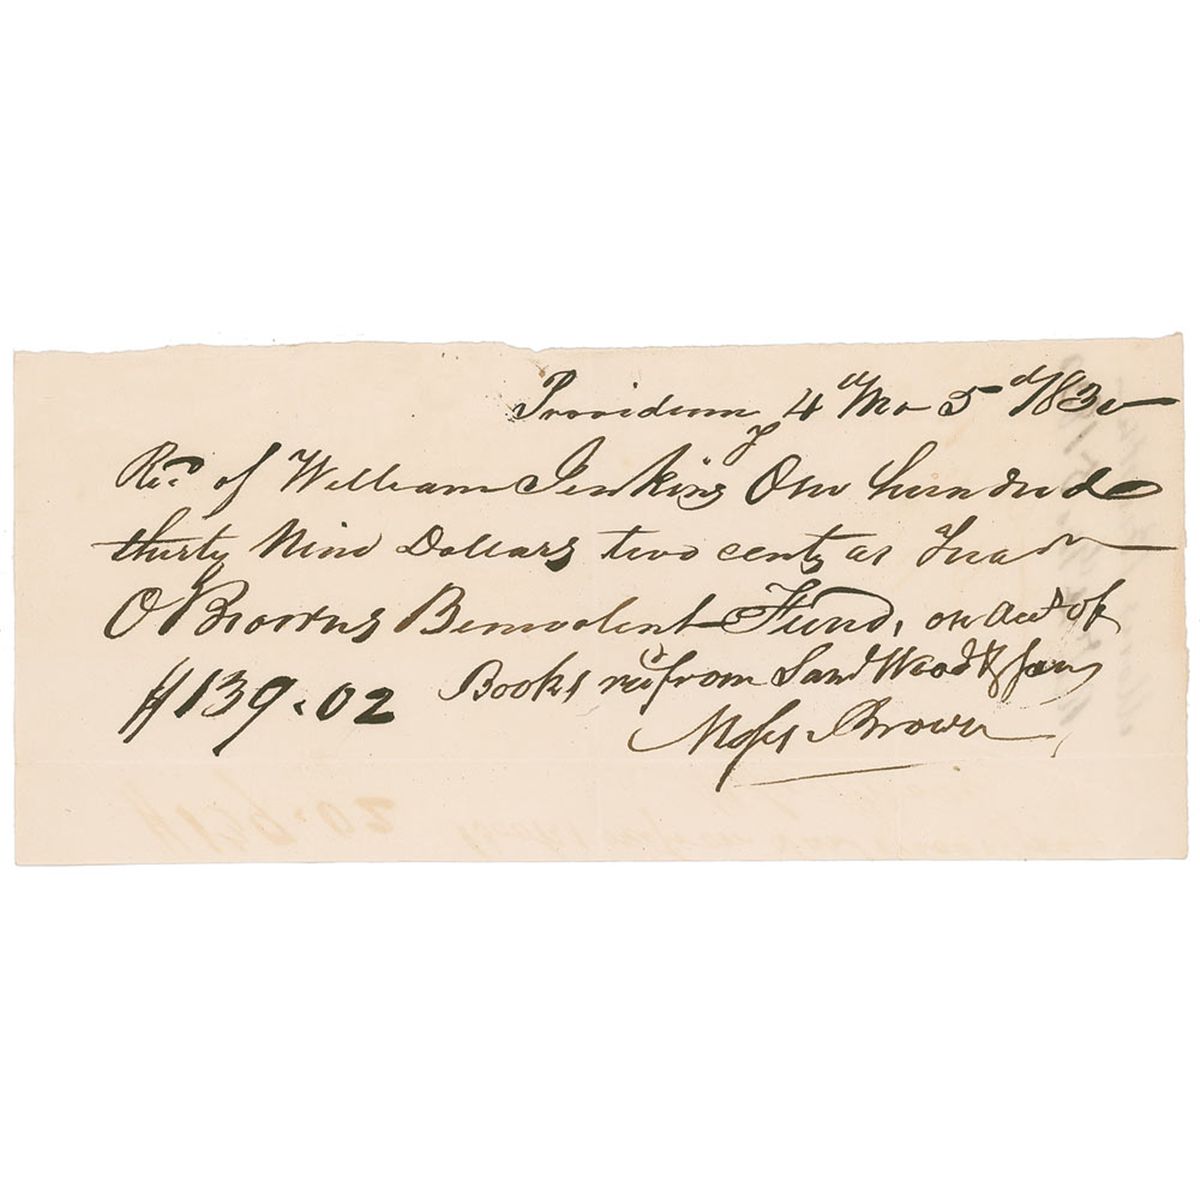 Providence 4th Mo 5d 1830
Recd of William Jenkins One hundred
thirty Nine Dollars two cents as Treasr
O Browns Benevolent Fund, on acct of
$139.02 Books recd from Saml Wood & Sons
Moses Brown
$139.02